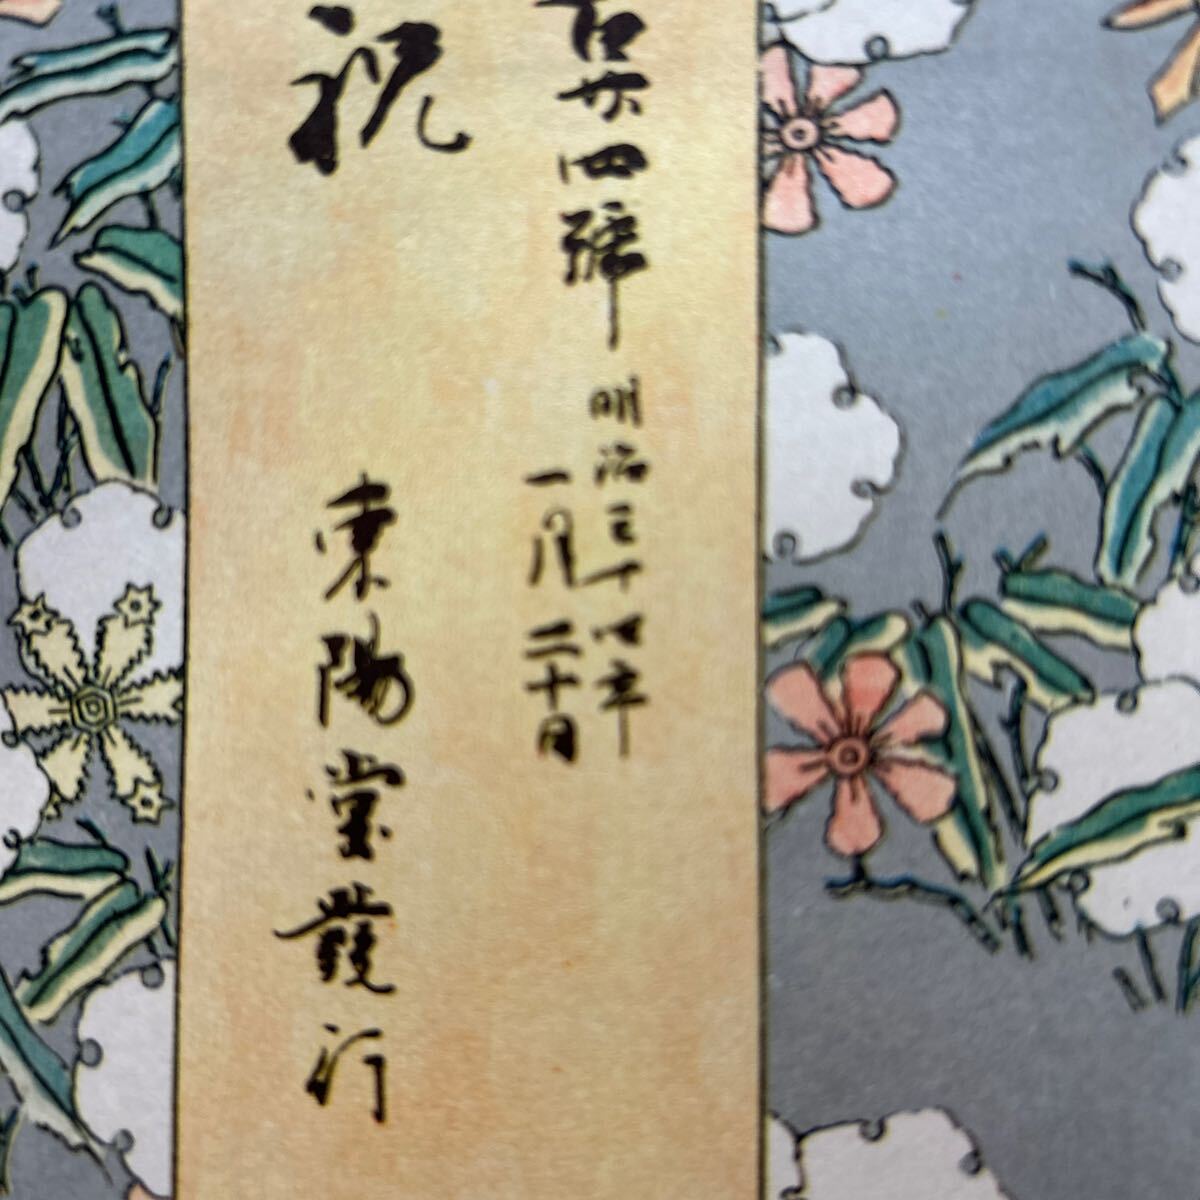 百廿四號
明治三十四年
一月二十日
祝
東陽堂發行